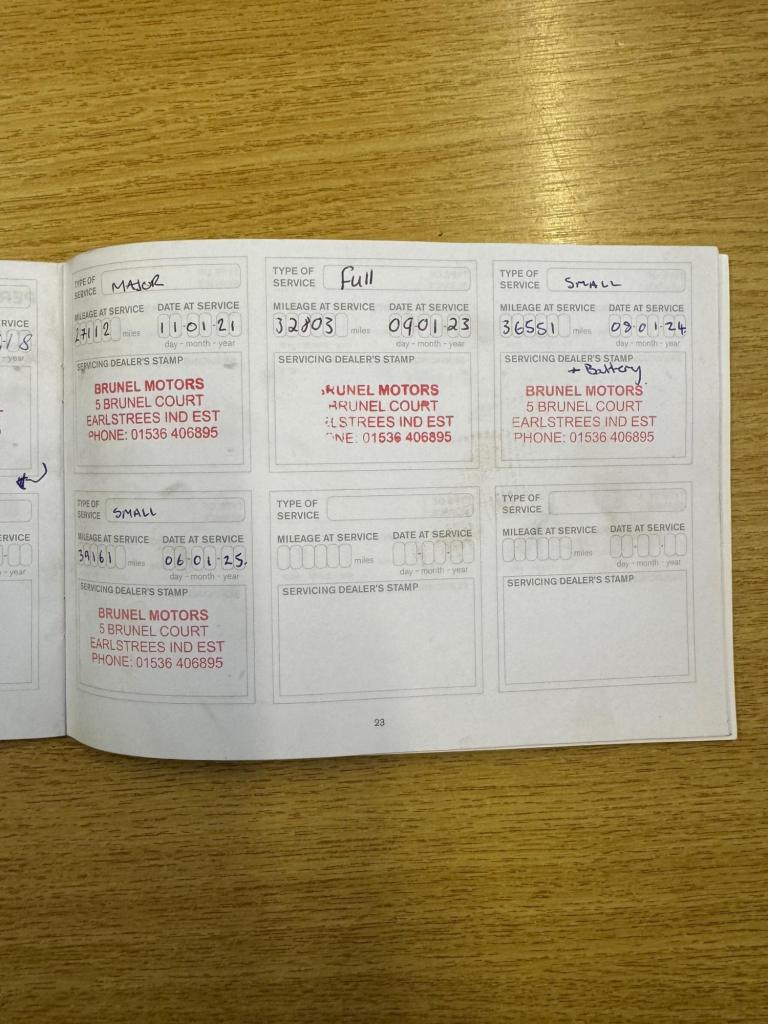 TYPE OF SERVICE MAJOR
MILEAGE AT SERVICE DATE AT SERVICE
27112 miles 11-01-21
day - month - year
SERVICING DEALER'S STAMP
BRUNEL MOTORS
5 BRUNEL COURT
EARLSTREES IND EST
PHONE: 01536 406895
TYPE OF SERVICE Full
MILEAGE AT SERVICE DATE AT SERVICE
32803 miles 09-01-23
day - month - year
SERVICING DEALER'S STAMP
RUNEL MOTORS
BRUNEL COURT
LSTREES IND EST
NE: 01536 406895
TYPE OF SERVICE SMALL
MILEAGE AT SERVICE DATE AT SERVICE
36551 miles 08-01-24
day - month - year
SERVICING DEALER'S STAMP
+ Battery
BRUNEL MOTORS
5 BRUNEL COURT
EARLSTREES IND EST
PHONE: 01536 406895
TYPE OF SERVICE SMALL
MILEAGE AT SERVICE DATE AT SERVICE
39161 miles 06-01-25.
day - month - year
SERVICING DEALER'S STAMP
BRUNEL MOTORS
5 BRUNEL COURT
EARLSTREES IND EST
PHONE: 01536 406895
TYPE OF SERVICE
MILEAGE AT SERVICE DATE AT SERVICE
miles
day - month - year
SERVICING DEALER'S STAMP
TYPE OF SERVICE
MILEAGE AT SERVICE DATE AT SERVICE
miles
day - month - year
SERVICING DEALER'S STAMP
23